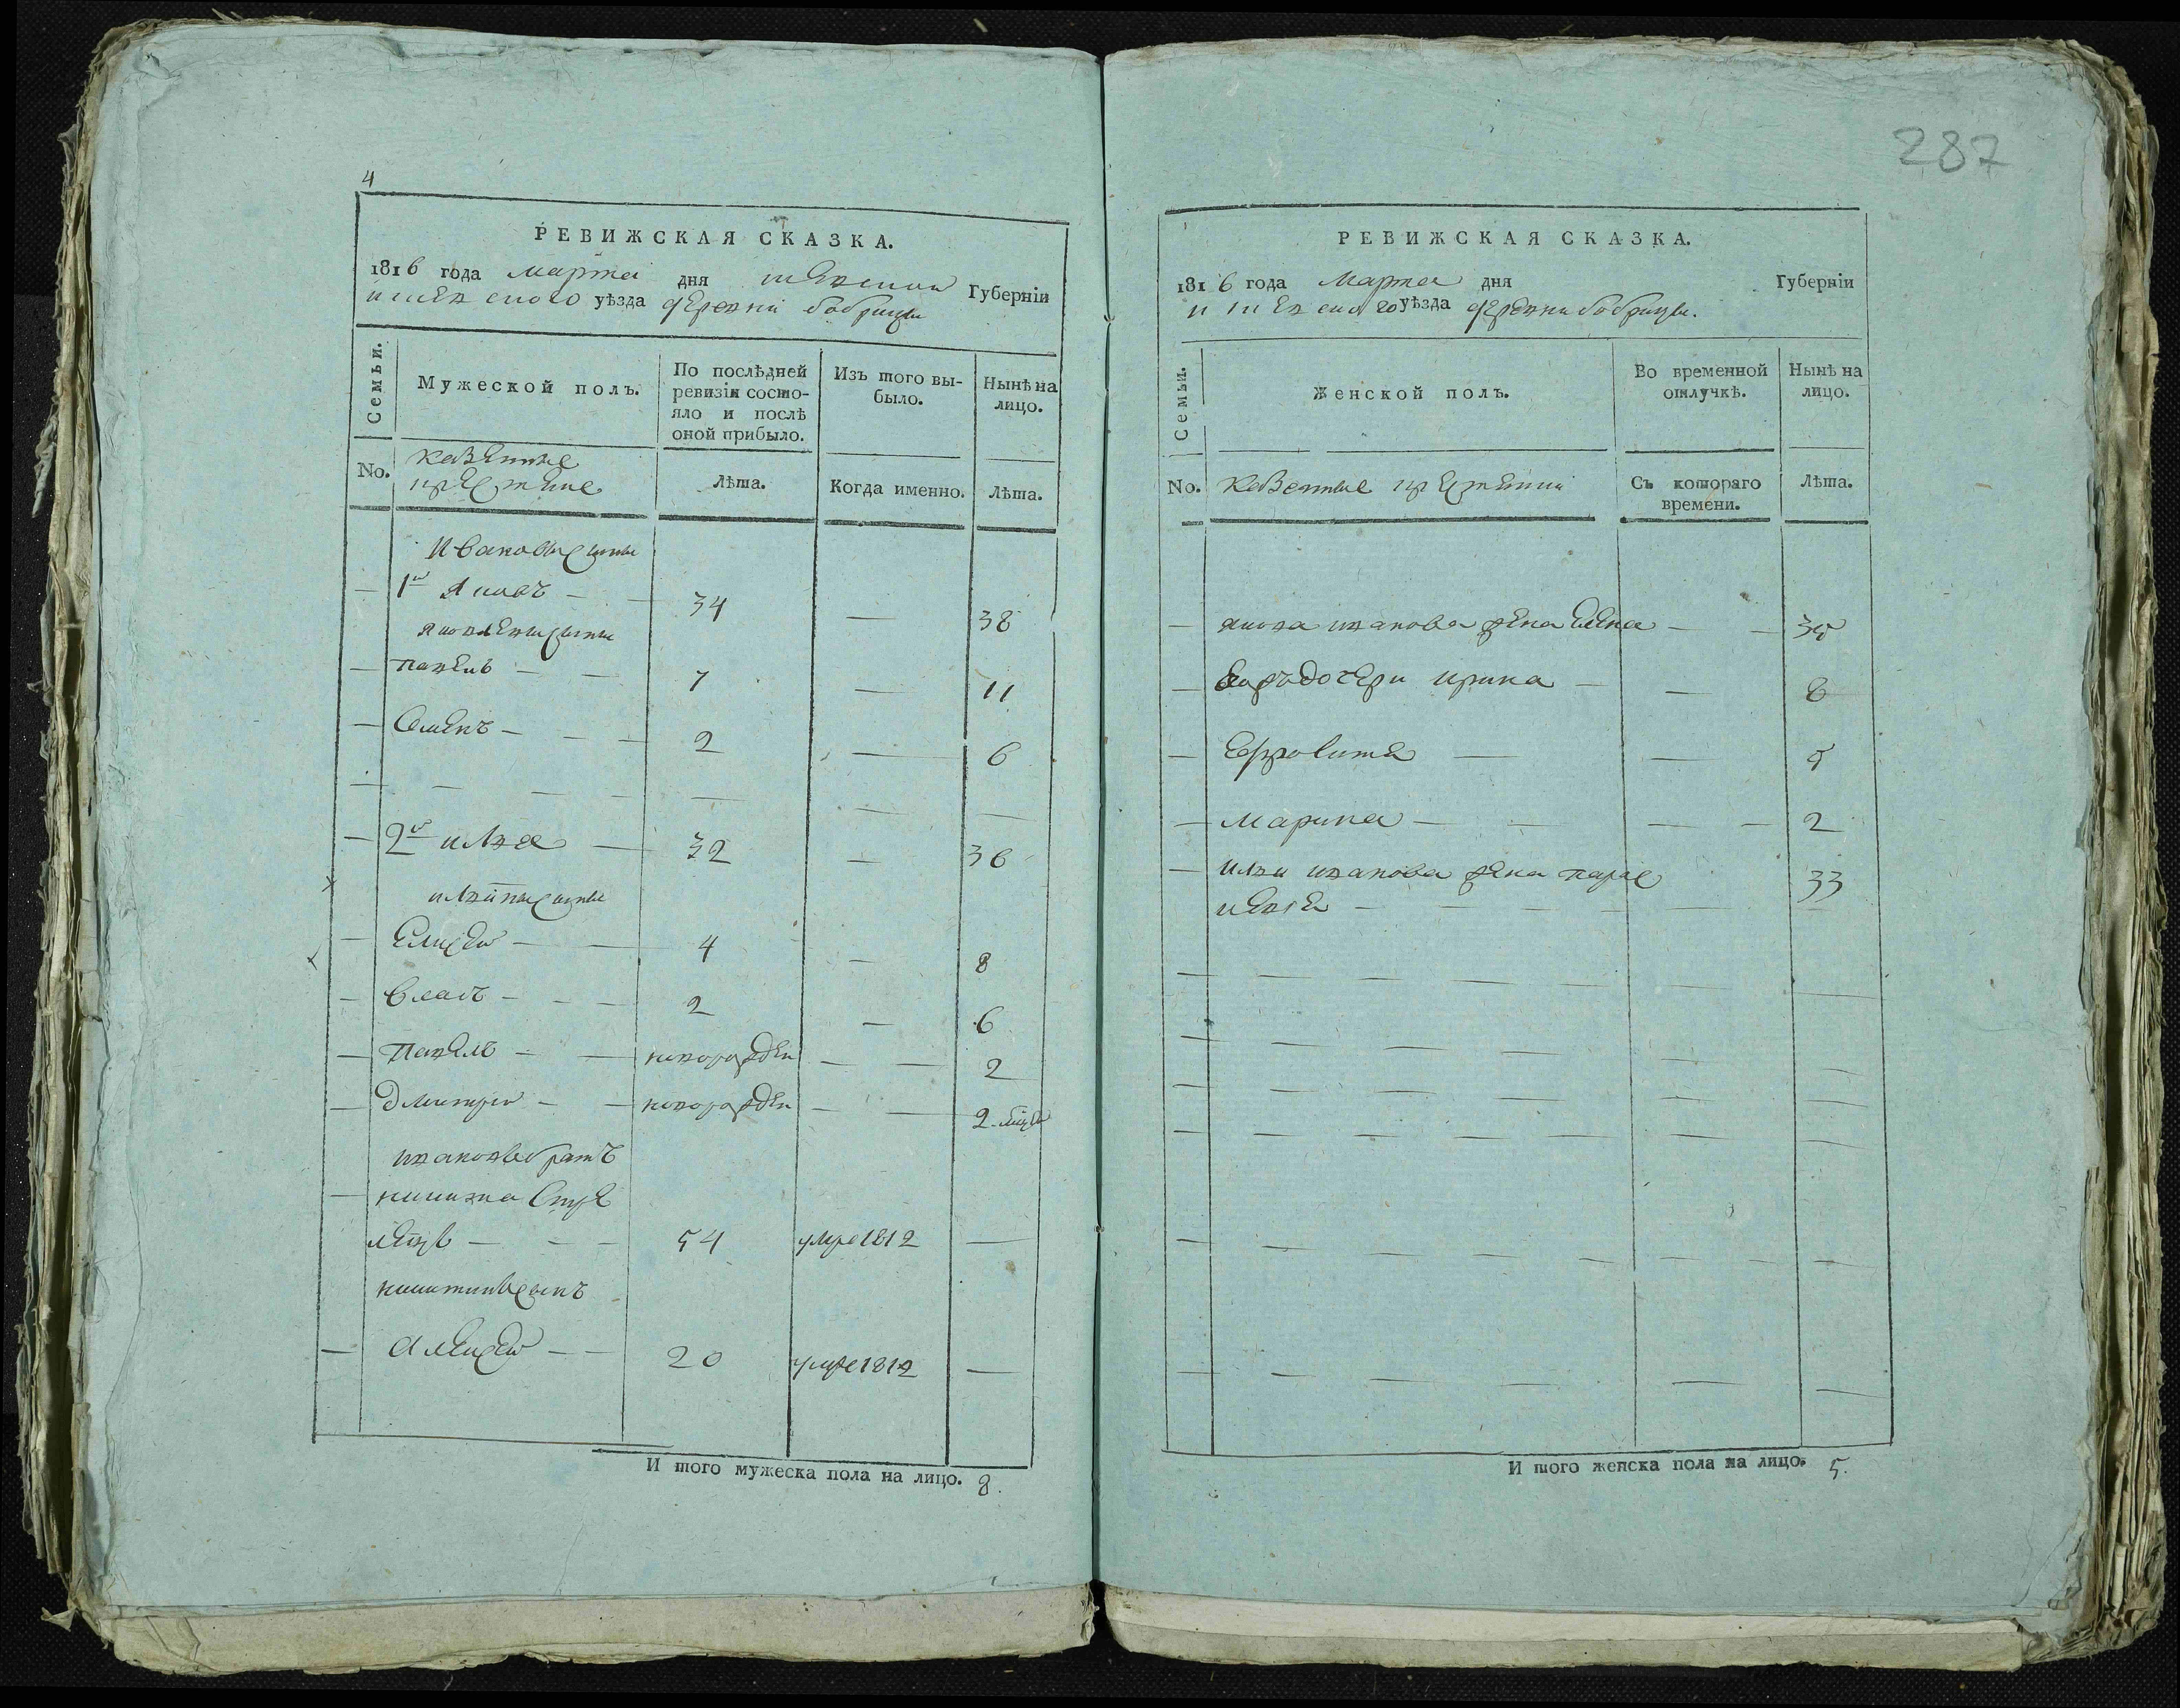 4
РЕВИЖСКАЯ СКАЗКА.
1816 года марта дня киевской Губерніи
киевского уѣзда деревни бобрицы
Семьи.
Мужеской полъ.
По послѣдней ревизіи состояло и послѣ оной прибыло.
Изъ того выбыло.
Нынѣ на лицо.
No.
казенные
крестяне
лѣта.
Когда именно.
лѣта.
Ивановы сыны
1й Яковъ 34 38
яковлевы сыны
павелъ 7 11
Семенъ 2 6
2й илья 32 36
ильины сыны
Елисей 4 8
власъ 2 6
павелъ новорожден 2
дмитрий новорожден 2
ивановъ братъ
никита Стре
лецъ 54 умре 1812
никитинъ сынъ
алексей 20 умре 1812
И того мужеска пола на лицо. 8.
287
РЕВИЖСКАЯ СКАЗКА.
1816 года Марта дня Губерніи
киевского уѣзда деревни бобрицы.
Семьи.
Женской полъ.
Во временной отлучкѣ.
Нынѣ на лицо.
No.
казенные крестяни
Съ котораго времени.
лѣта.
якова иванова жена Елена 35
дочери ирина 8
Ефросиня 5
марина 2
ильи иванова жена парас 33
кевея
И того женска пола на лицо. 5.